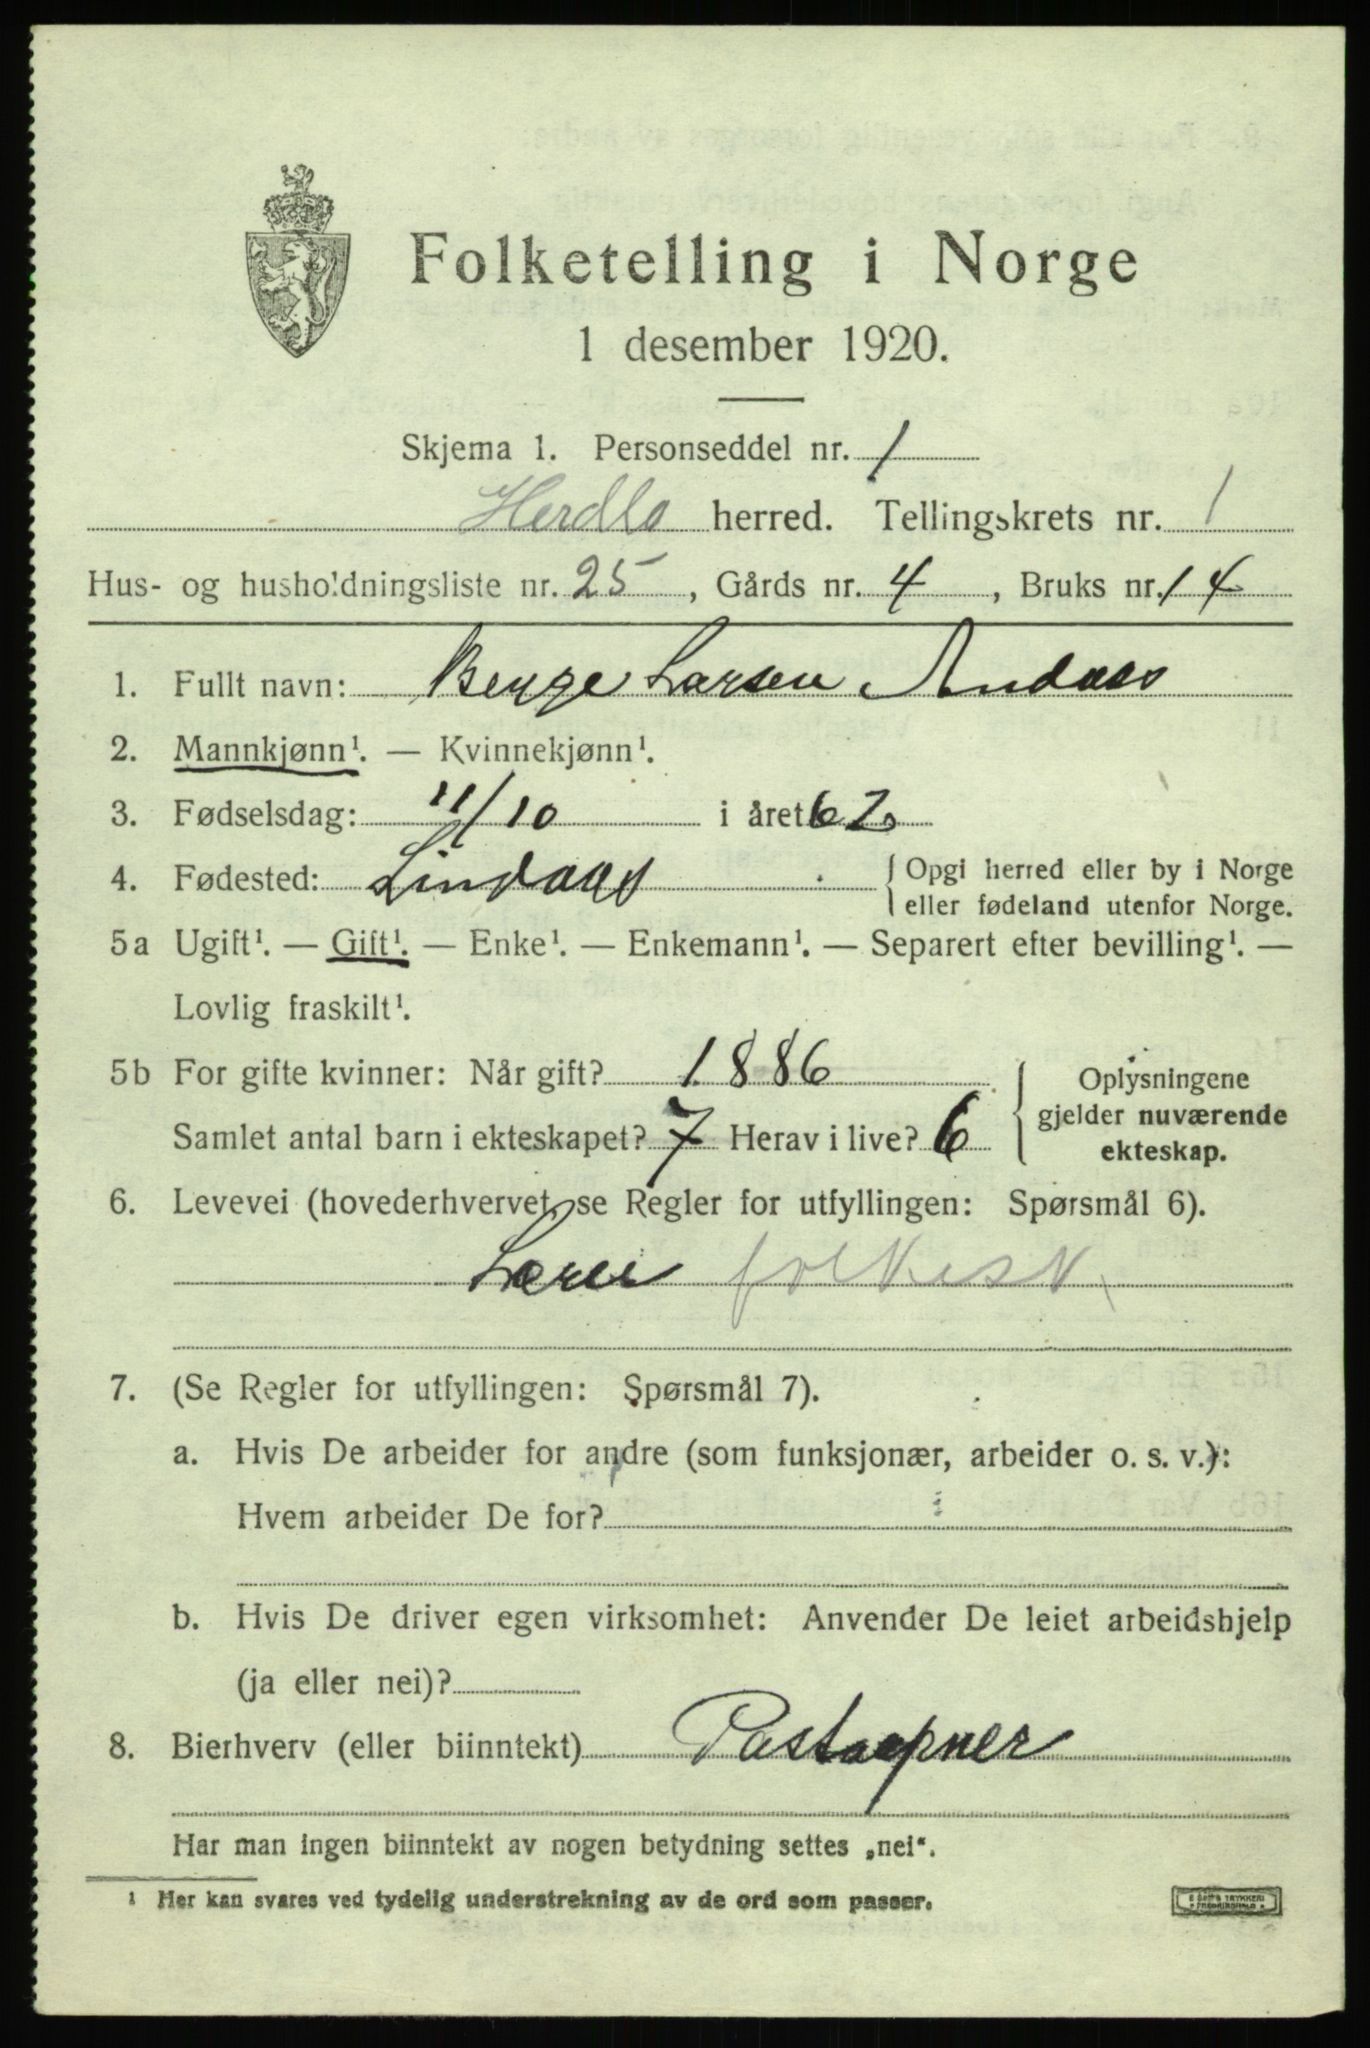 Folketelling i Norge
1 desember 1920.
Skjema 1. Personseddel nr. 1
Herdlo herred. Tellingskrets nr. 1
Hus- og husholdningsliste nr. 25, Gårds nr. 4, Bruks nr. 14
1. Fullt navn: Berge Larsen Andaas
2. Mannkjønn¹. — Kvinnekjønn¹.
3. Fødselsdag: 11/10 i året 62
4. Fødested: Lindaas . { Opgi herred eller by i Norge
eller fødeland utenfor Norge.
5a Ugift¹. — Gift¹. — Enke¹. — Enkemann¹. — Separert efter bevilling¹. —
Lovlig fraskilt¹.
5b For gifte kvinner: Når gift? 1886 { Oplysningene
gjelder nuværende
Samlet antal barn i ekteskapet? 7 Herav i live? 6
ekteskap.
6. Levevei (hovederhvervet, se Regler for utfyllingen: Spørsmål 6).
Lærer folkesk.
7. (Se Regler for utfyllingen: Spørsmål 7).
a. Hvis De arbeider for andre (som funksjonær, arbeider o. s. v.):
Hvem arbeider De for?
b. Hvis De driver egen virksomhet: Anvender De leiet arbeidshjelp
(ja eller nei)?
8. Bierhverv (eller biinntekt) Postaapner
Har man ingen biinntekt av nogen betydning settes „nei“.
¹ Her kan svares ved tydelig understrekning av de ord som passer.